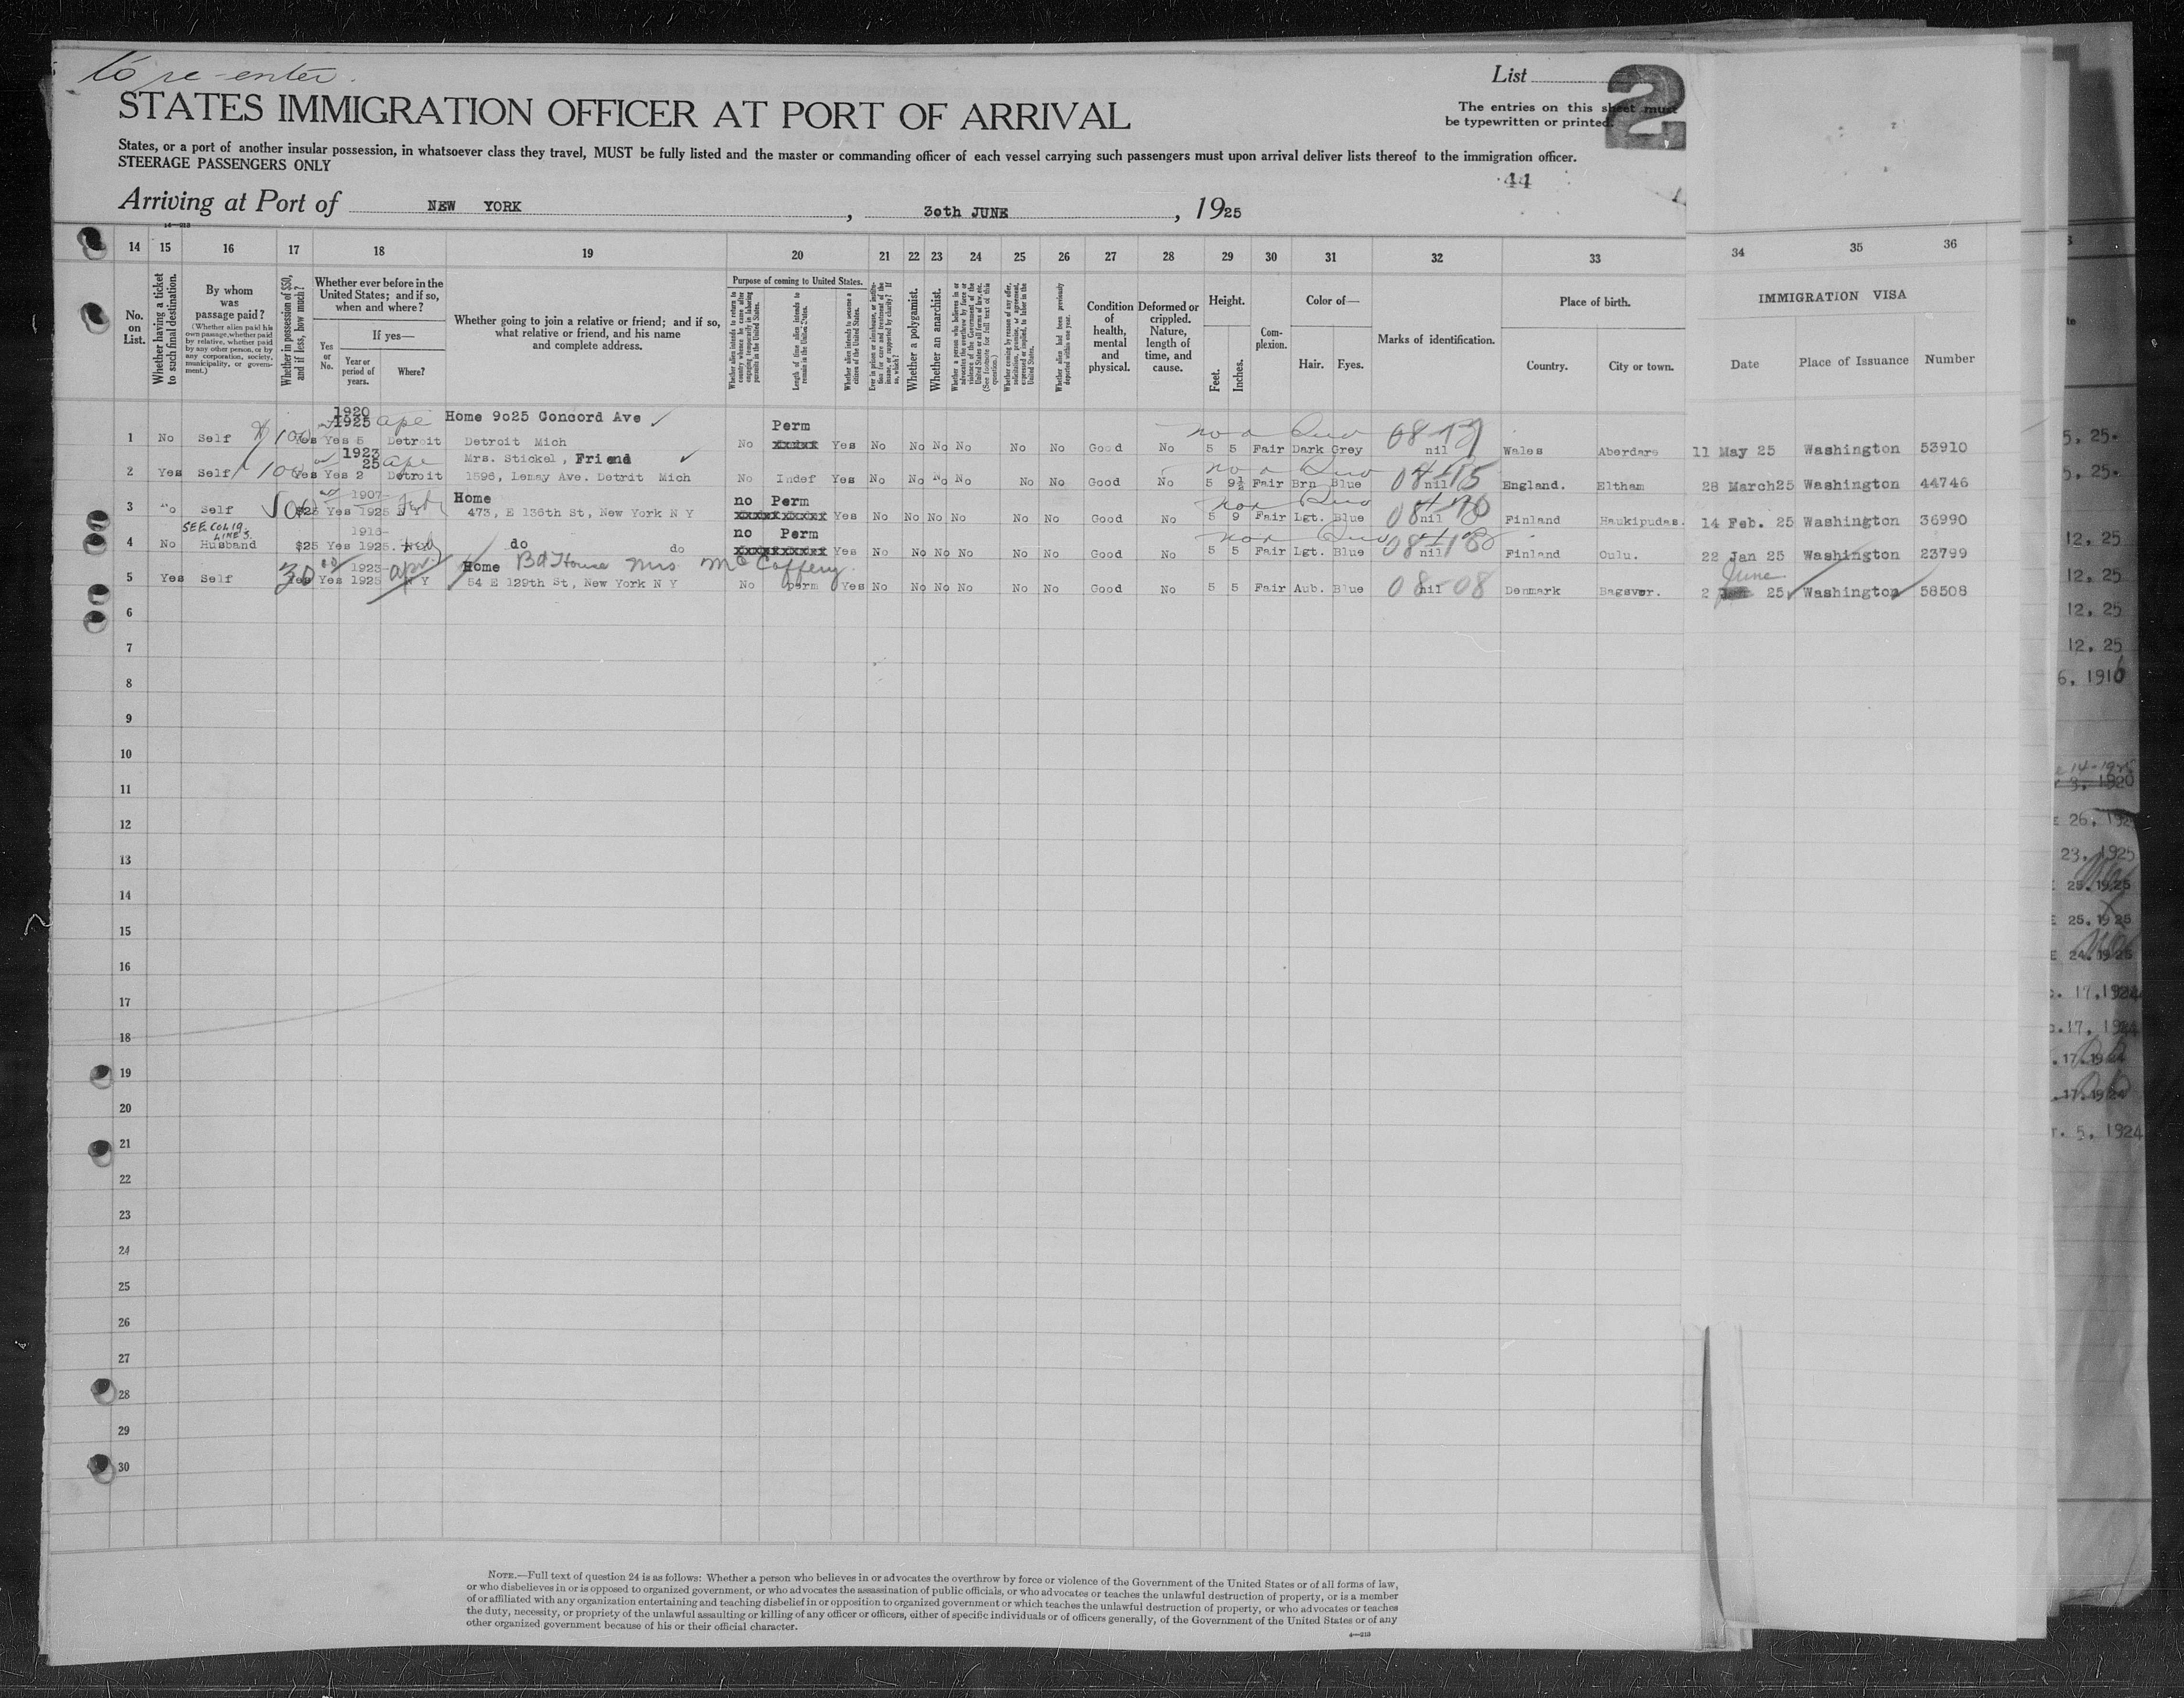 To re-enter.
List 2
STATES IMMIGRATION OFFICER AT PORT OF ARRIVAL
The entries on this sheet must
be typewritten or printed.
States, or a port of another insular possession, in whatsoever class they travel, MUST be fully listed and the master or commanding officer of each vessel carrying such passengers must upon arrival deliver lists thereof to the immigration officer.
STEERAGE PASSENGERS ONLY
44
Arriving at Port of NEW YORK, 30th JUNE, 1925
14 15 16 17 18 19 20 21 22 23 24 25 26 27 28 29 30 31 32 33 34 35 36
No. on List.
Whether having a ticket to such final destination.
By whom was passage paid?
(Whether alien paid his own passage, whether paid by relative, whether paid by any other person, or by any corporation, society, municipality, or government.)
Whether in possession of $50, and if less, how much?
Whether ever before in the United States; and if so, when and where?
If yes—
Yes or No.
Year or period of years.
Where?
Whether going to join a relative or friend; and if so, what relative or friend, and his name and complete address.
Purpose of coming to United States.
Whether alien intends to return to country whence he came after engaging temporarily in laboring pursuits in the United States.
Length of time alien intends to remain in the United States.
Whether alien intends to become a citizen of the United States.
Ever in prison or almshouse, or institution for care and treatment of the insane, or supported by charity? If so, which?
Whether a polygamist.
Whether an anarchist.
Whether a person who believes in or advocates the overthrow by force or violence of the Government of the United States or all forms of law, etc. (See footnote for full text of this question.)
Whether coming by reason of any offer, solicitation, promise, or agreement, expressed or implied, to labor in the United States.
Whether alien had been previously deported within one year.
Condition of health, mental and physical.
Deformed or crippled. Nature, length of time, and cause.
Height.
Feet. Inches.
Complexion.
Color of—
Hair. Eyes.
Marks of identification.
Place of birth.
Country. City or town.
IMMIGRATION VISA
Date Place of Issuance Number
1920
1925 Home 9025 Concord Ave
Perm
1 No Self 100 Yes Yes 5 Detroit Detroit Mich No Yes No No No No No No Good No 5 5 Fair Dark Grey nil Wales Aberdare 11 May 25 Washington 53910
1923
25 Mrs. Stickel, Friend
2 Yes Self 100 Yes Yes 2 Detroit 1596, Lemay Ave. Detrit Mich No Indef Yes No No No No No No Good No 5 9½ Fair Brn Blue nil England. Eltham 28 March25 Washington 44746
1907- Home no Perm
3 No Self 50 $25 Yes 1925 N Y 473, E 136th St, New York N Y Yes No No No No No No Good No 5 9 Fair Lgt. Blue nil Finland Haukipudas. 14 Feb. 25 Washington 36990
SEE COL 19 LINE 3.
no Perm
4 No Husband $25 Yes 1925. do do Yes No No No No No No Good No 5 5 Fair Lgt. Blue nil Finland Oulu. 22 Jan 25 Washington 23799
1923- Home Bd House Mrs McCaffery. June
5 Yes Self 30 Yes Yes 1925 N Y 54 E 129th St, New York N Y No perm Yes No No No No No No Good No 5 5 Fair Aub. Blue nil 08-08 Denmark Bagsver. 2 25 Washington 58508
6
7
8
9
10
11
12
13
14
15
16
17
18
19
20
21
22
23
24
25
26
27
28
29
30
5, 25.
5, 25.
12, 25
12, 25
12, 25
12, 25
6, 1916
14-1925
26, 192
23, 1925
25, 1925
25, 1925
24, 1925
17, 1924
17, 1924
17, 1924
17, 1924
5, 1924
NOTE.—Full text of question 24 is as follows: Whether a person who believes in or advocates the overthrow by force or violence of the Government of the United States or of all forms of law,
or who disbelieves in or is opposed to organized government, or who advocates the assassination of public officials, or who advocates or teaches the unlawful destruction of property, or is a member
of or affiliated with any organization entertaining and teaching disbelief in or opposition to organized government or which teaches the unlawful destruction of property, or who advocates or teaches
the duty, necessity, or propriety of the unlawful assaulting or killing of any officer or officers, either of specific individuals or of officers generally, of the Government of the United States or of any
other organized government because of his or their official character.